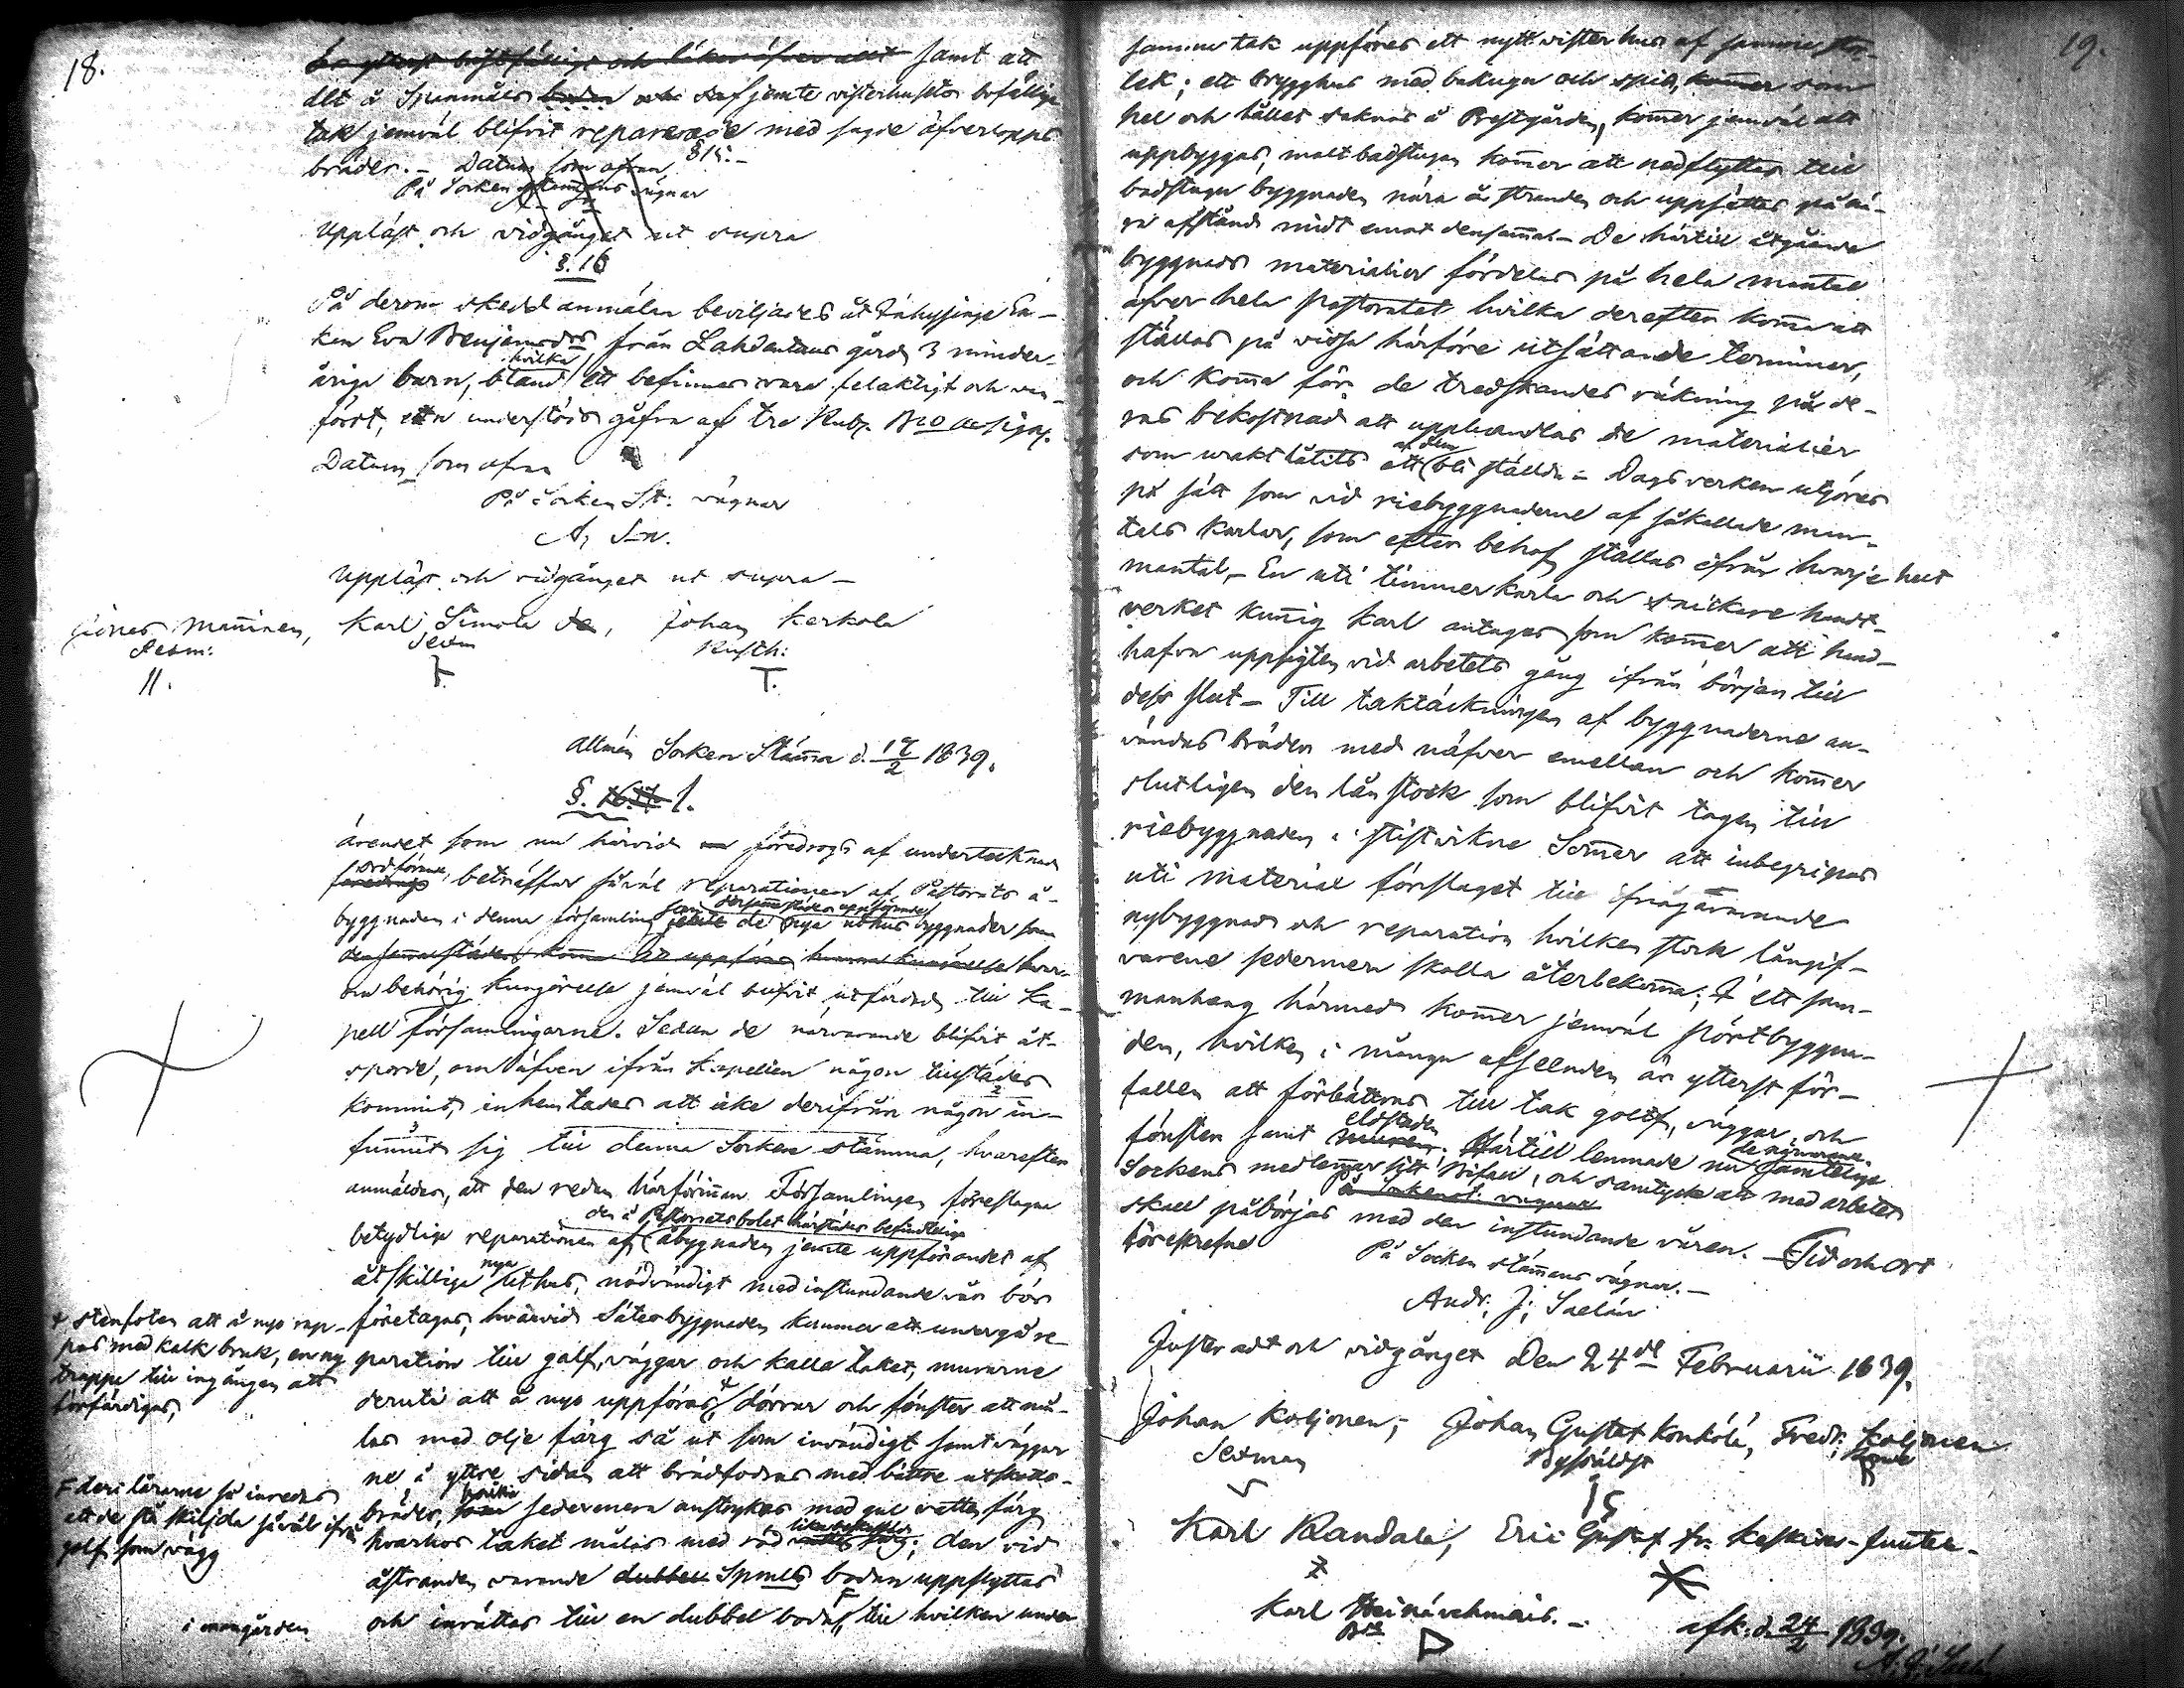 18.
samt att
alt å Spanmåls boden och jemte visterhusets bofällige
tak jemväl blifvit reparerade med sagde öfverlopps
bräder. – Datum som ofvan §15. –
På Sockenstämmans vägnar
Uppläst och vidgånget ut supra
§. 16
På derom skedd anmälan beviljades åt Inhysinge En-
kan Eva Benjamsdr från Lahdentaus gård 3 minder-
åriga barn, bland hvilka ett befinnes vara felaktigt och van-
fört, ett understöd gåfva af tre Rub. Bco Assign.
Datum som ofvan
På Socken St: vägnar
A. S-n.
Uppläst och vidgånget ut supra –
Manninen, Karl Simola, Johan Kerkola
Sexm: Sexm Rusth:
11. T.
Allmän Socken Stämma d. 17/2 1839.
§. 16.17. 1.
ärendet som nu härvid föredrogs af undertecknad
ordförande, beträffar såväl reparationen af Pastorats å-
byggnaden i denna församling som jemte de dersammastädes uppförande nya uthus byggnader som
dersammastädes komma att uppföras, hvar-
om behörig kungörelse jemväl blifvit utfärdad till Ka-
pell Församlingarne. Sedan de närvarande blifvit åt-
sporde, om äfven ifrån Kapellen någon tillstädes
kommit, inhemtades att icke derifrån någon in-
funnit sig till denna Socken stämma, hvarefter
anmäldes, att den redan härförinnan Församlingen föreslagna
betydliga reparationen af den å Pastoratsbolet härstädes befindtliga åbyggnaden jemte uppförandet af
åtskillige nya uthus, nödvändigt med instundande vår bör
företagas, hvarvid Säterbyggnaden kommer att undergå re-
paration till golf, väggar och kalla taket, murarne
deruti att å nyo uppföras, + dörrar och fönster att må-
las med olje färg så ut som invändigt samt väggar
ne å yttre sidan att brädfodras med bättre utskotts-
bräder, hvilka sedermera anstrykes med gul vatten färg
hvarhos taket målas med röd likabeskaffad färg; den vid
åstranden varande dubbel Spmåls bodan uppflyttas
och inrättas till en dubbel bod F, till hvilken under
+ stenfoten att å nyo rap-
pas med kalk bruk, en ny
trappa till ingången att
förfärdigas,
F deri lårarne så inredas
att de stå skiljda såväl ifrån
golf som vägg
i mangården
19.
samma tak uppföres ett nytt visterhus af samma stor-
lek; ett brygghus med bakugn och spis, kommer som
hel och hållet saknas å Prestgården, kommer jemväl att
uppbyggas, malt badstugan kommer att nedflyttas till
badstugu byggnaden nära åstranden och uppsättas på nå-
ra afstånd midt emot densamma. – De härtill åtgående
byggnads materialier fördelas på hela mantal
öfver hela pastoratet hvilka derefter komma att
ställas på vissa härföre utsättande terminer,
och komma för de tredskandes räkning på de-
ras bekostnad att upphandlas de materialier
som uraktlåtits att af dem bli ställda – Dagsverken utgöres
på sätt som vid riebyggnaderne af såkallade man-
tals karlar, som efter behof ställas ifrån hvarje helt
mantal. – En uti timmerkarla och snickare handt-
verket kunnig karl antages som kommer att hand-
hafva uppsigten vid arbetets gång ifrån början till
dess slut – Till taktäckningen af byggnaderne an-
vändes bräder med näfver emellan och kommer
slutligen den lån stock som blifvit tagen till
riebyggnaden i sistvikne Sommer att inbegripas
uti material förslaget till ifrågavarande
nybyggnad och reparation hvilken stock långif-
varene sedermera skola återbekomma; I ett sam-
manhang härmed kommer jemväl pörtbyggna-
den, hvilken i många afseenden är ytterst för-
fallen att förbättras till tak golf, väggar, och
fönster samt eldstaden. Härtill lemnade nu de närvarande samtelige
Sockens medlemmar sitt Bifall, och samtyckte att med arbetet
På Sockenst: vägnar
skall påbörjas med den instundande våren. – Tid och ort
föreskrefne
På Socken stämmans vägnar. –
Andr. J: Saelán
Justeradt och vidgånget Den 24de Februarii 1839.
Johan Koljonen, Johan Gustaf Konkola, Fredr. Koljonen
Sexman Byålderst
Karl Randala, Eric Gustaf fr. Keskiven-funtela
Karl Heinävehmais. –
afk. d. 24/2 1839.
A. J. Saelán